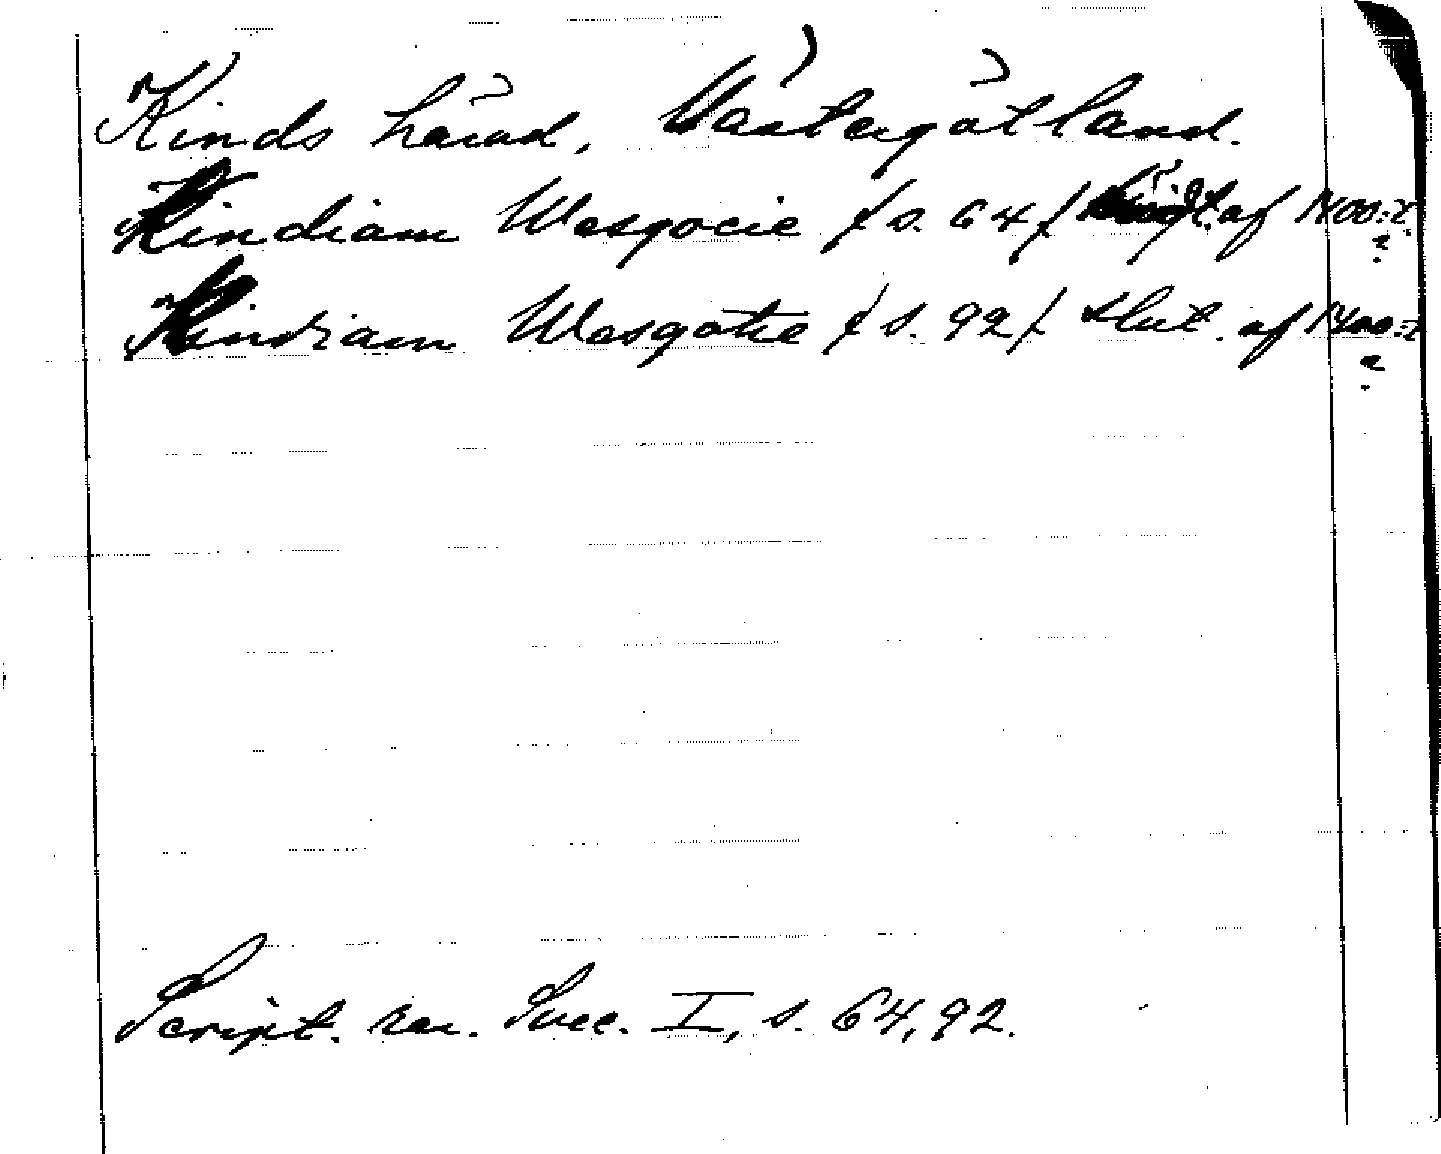 Kinds härad, Västergötland.
Kindiam Wesgocie / s. 64 / af 1400-t.
Kindiam Wesgotie / s. 92 / slut. af 1400-t.
Script. rer. Svec. I, s. 64, 92.